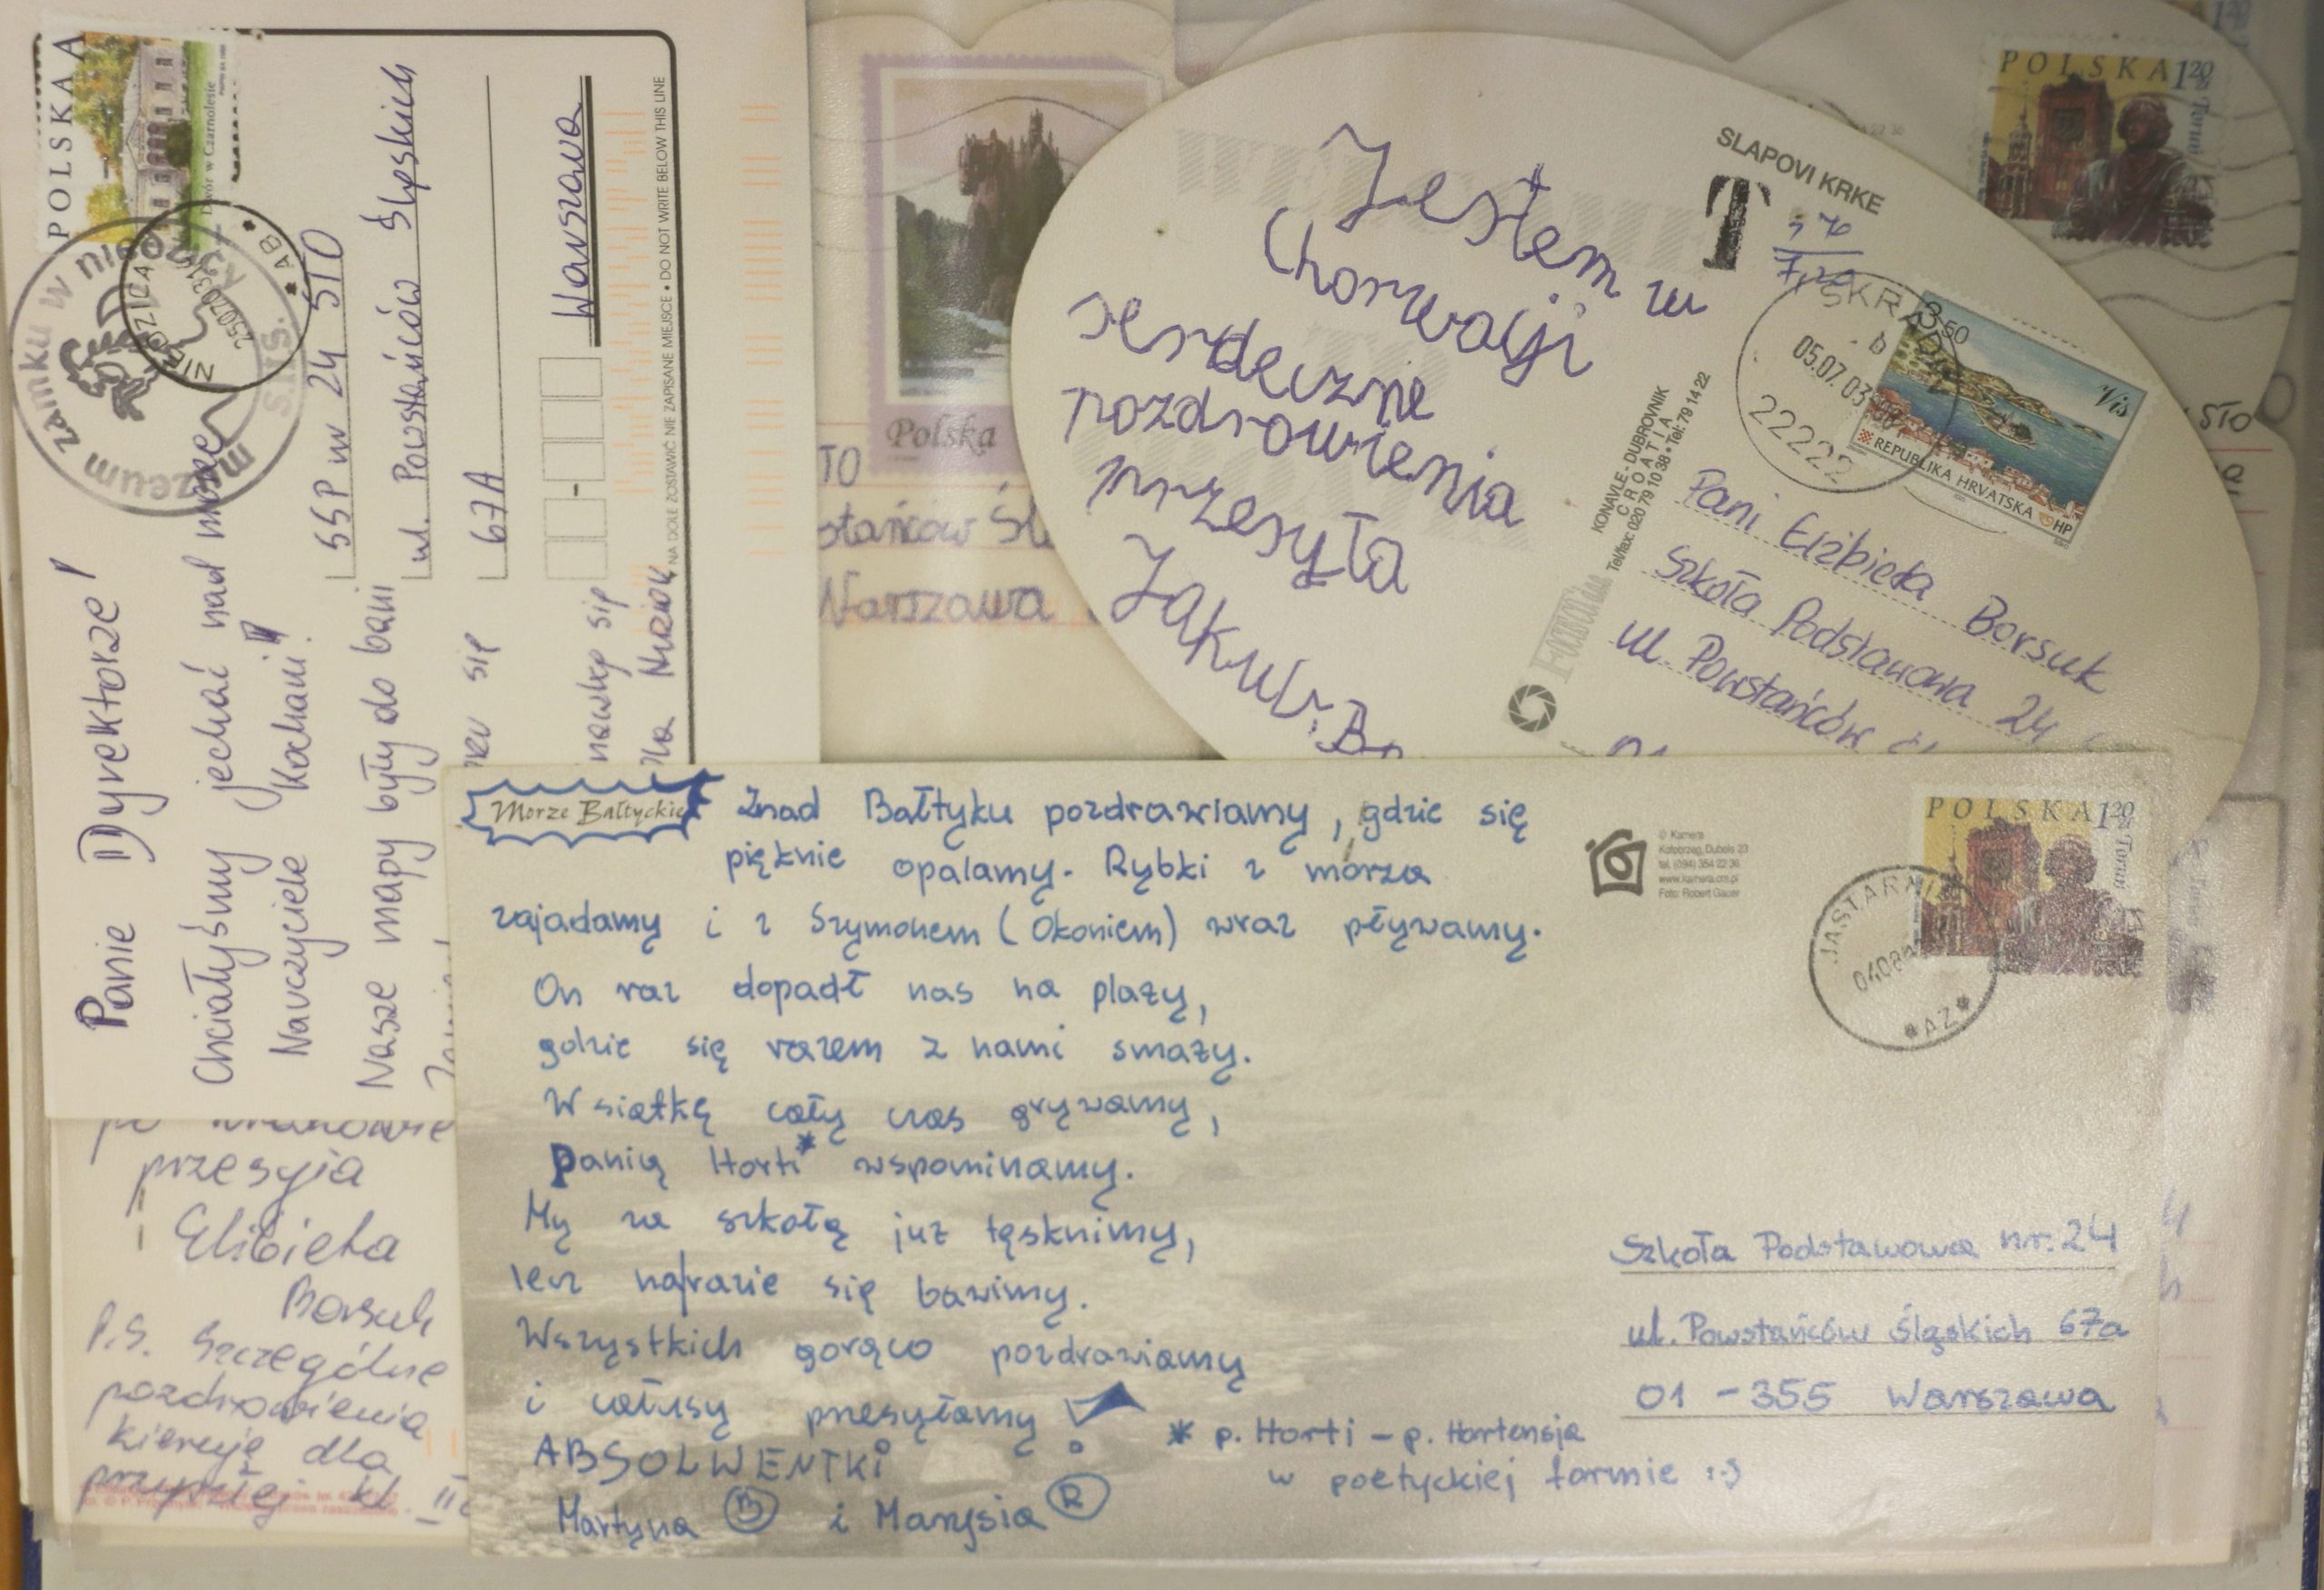 POLSKA A
Dwór w Czarnolesie
muzeum zamku w nieborzycy
SSP nr 24 STO
ul. Powstańców Śląskich
67A
Warszawa
NA DOLE ZOSTAWIĆ NIE ZAPISANE MIEJSCE • DO NOT WRITE BELOW THIS LINE
Panie Dyrektorze!
Chciałyśmy jechać nad morze
Nauczyciele Kochani!
Nasze mapy były do bani
się
się
Polska
TO
Warszawa
Jestem w
Chorwacji
serdeczne
pozdrowienia
przesyła
Jakub
SLAPOVI KRKE
T
05.07.03
22222
3,50
Vis
REPUBLIKA HRVATSKA
HP
KONAVLE - DUBROVNIK
CROATIA
Tel/fax: 020 79 10 38 • Tel: 79 14 22
Pani Elżbieta Borsuk
Szkoła Podstawowa 24
ul. Powstańców
POLSKA 1 20
Toruń
STO
przesyła
Elżbieta
Borsuk
P.S. Szczególne
pozdrowienia
kieruję dla
przyszłej kl. II
Morze Bałtyckie
Znad Bałtyku pozdrawiamy, gdzie się
pięknie opalamy. Rybki z morza
zajadamy i z Szymonem (Okoniem) wraz pływamy.
On raz dopadł nas na plaży,
gdzie się razem z nami smaży.
W siatkę cały czas grywamy,
Panią Horti* wspominamy.
My za szkołą już tęsknimy,
lecz narazie się bawimy.
Wszystkich gorąco pozdrawiamy
i całusy przesyłamy!
ABSOLWENTKI
Martyna B i Marysia R
* p. Horti – p. Hortensja
w poetyckiej formie :-)
© Kamera
Kołobrzeg, Dubois 23
tel. (094) 354 22 36
www.kamera.om.pl
Foto: Robert Gauer
POLSKA 1 20
Toruń
JASTARNIA
*AZ*
Szkoła Podstawowa nr. 24
ul. Powstańców Śląskich 67a
01-355 Warszawa